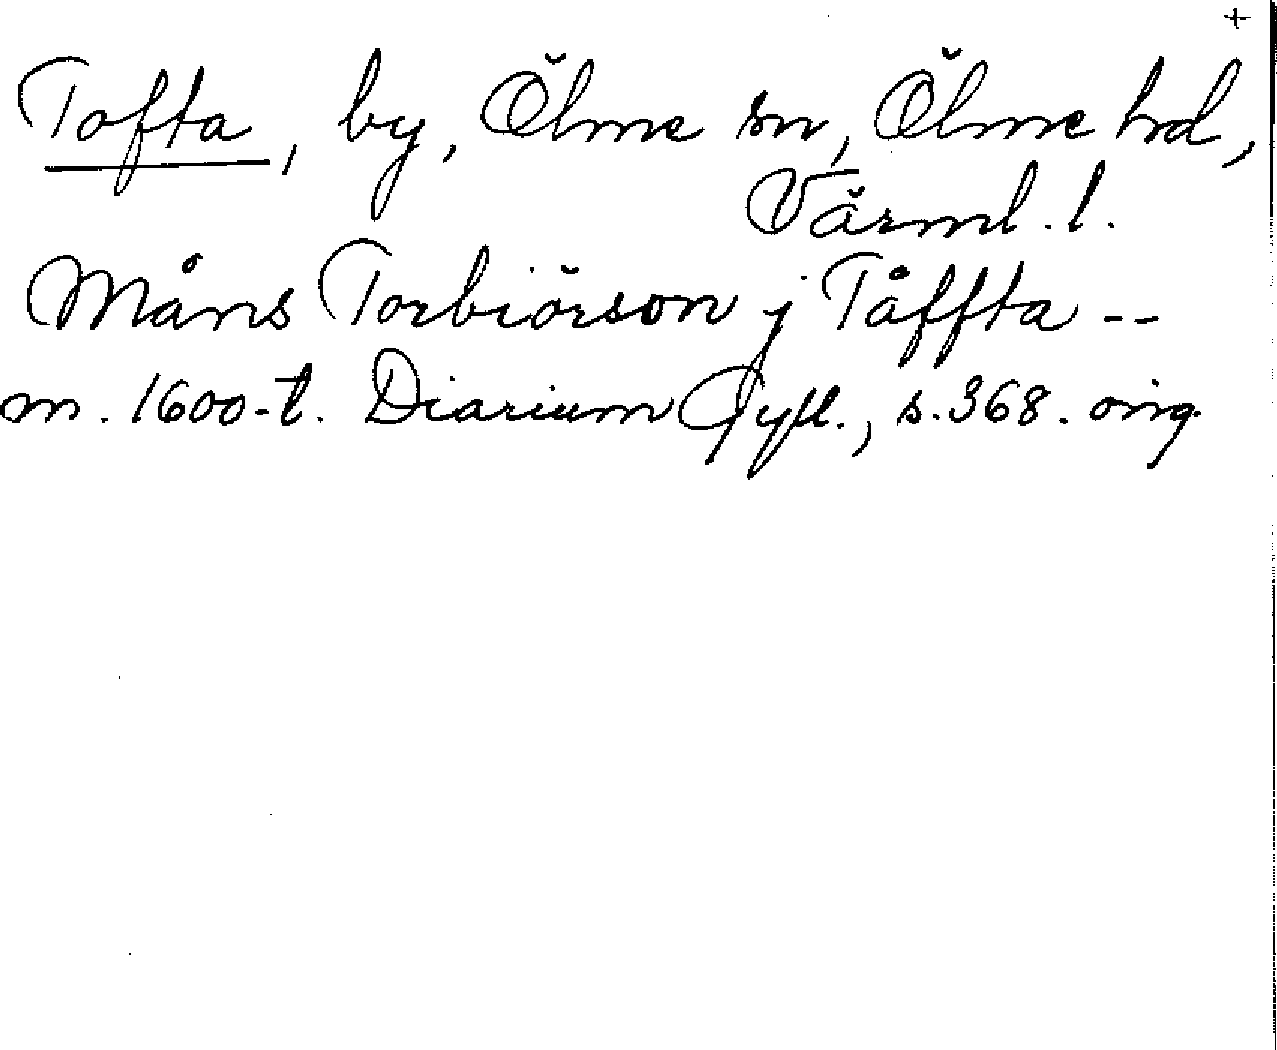 +
Tofta, by, Ölme sn, Ölme hd,
Värml. l.
Måns Torbiörson j Tåffta --
m. 1600-t. Diarium Gyll., s. 368. orig.